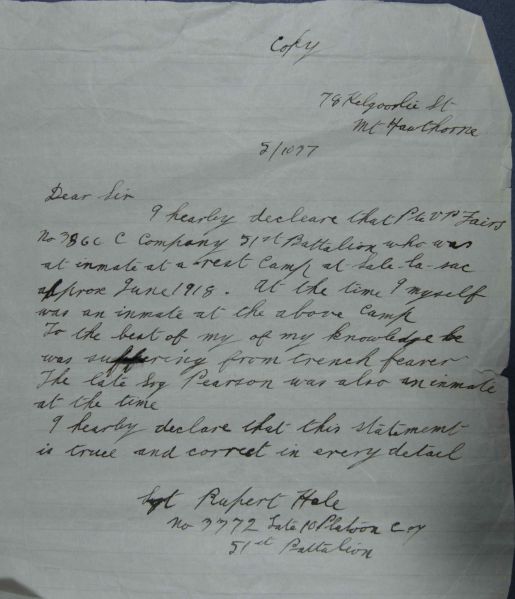 Copy
78 Kelgoorlie St
Mt Hawthorne
5/10
Dear Sir
I hearby decleare that Pte V P Fairs
No 3860 C Company 51st Battalion who was
at inmate at a rest Camp at Sale-la-sac
approx June 1918. At the time I myself
was an inmate at the above Camp
To the best of my of my knowledge he
was suffering from trench feaver
The late Sgy Pearson was also an inmate
at the time
I hearby declare that this statememt
is truee and correct in every detail
Sgt Rupert Hale
No 3772 Late 10 Platoon C oy
51st Battalion